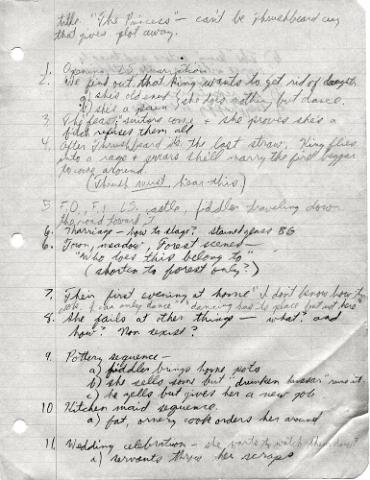 title. "The Princess" - can't be thrushbeard cuz
that gives plot away.
1. Opening, LS description
2. We find out that king wants to get rid of daughter
a) she's old enough
b) she's a pain
she does nothing but dance.
3. The feast; suitors come & she proves she's a
bitch refuses them all
4. After Thrushbeard it's the last straw. King flies
into a rage & swears she'll marry the first beggar
to come around.
(Thrush must hear this)
5. F.O., F.I. LS. castle, fiddler traveling down
the road toward it
6. Marriage - how to stage? stained glass BG
6. Town, meadow, Forest scened -
"Who does this belong to"
(shorten to forest only?)
7. Their first evening at home "I don't know how to
cook, I can only dance" "dancing has its place but not here"
8. She fails at other things - what? and
how? Non sexist?
9. Pottery sequence -
a) fiddler brings home pots
b) she sells some but "drunken hussar" ruins it.
c) he yells but gives her a new job
10. Kitchen maid sequence.
a) fat, ornery cook orders her around
11. Wedding celebration - she wants to watch
a) servants throw her scraps